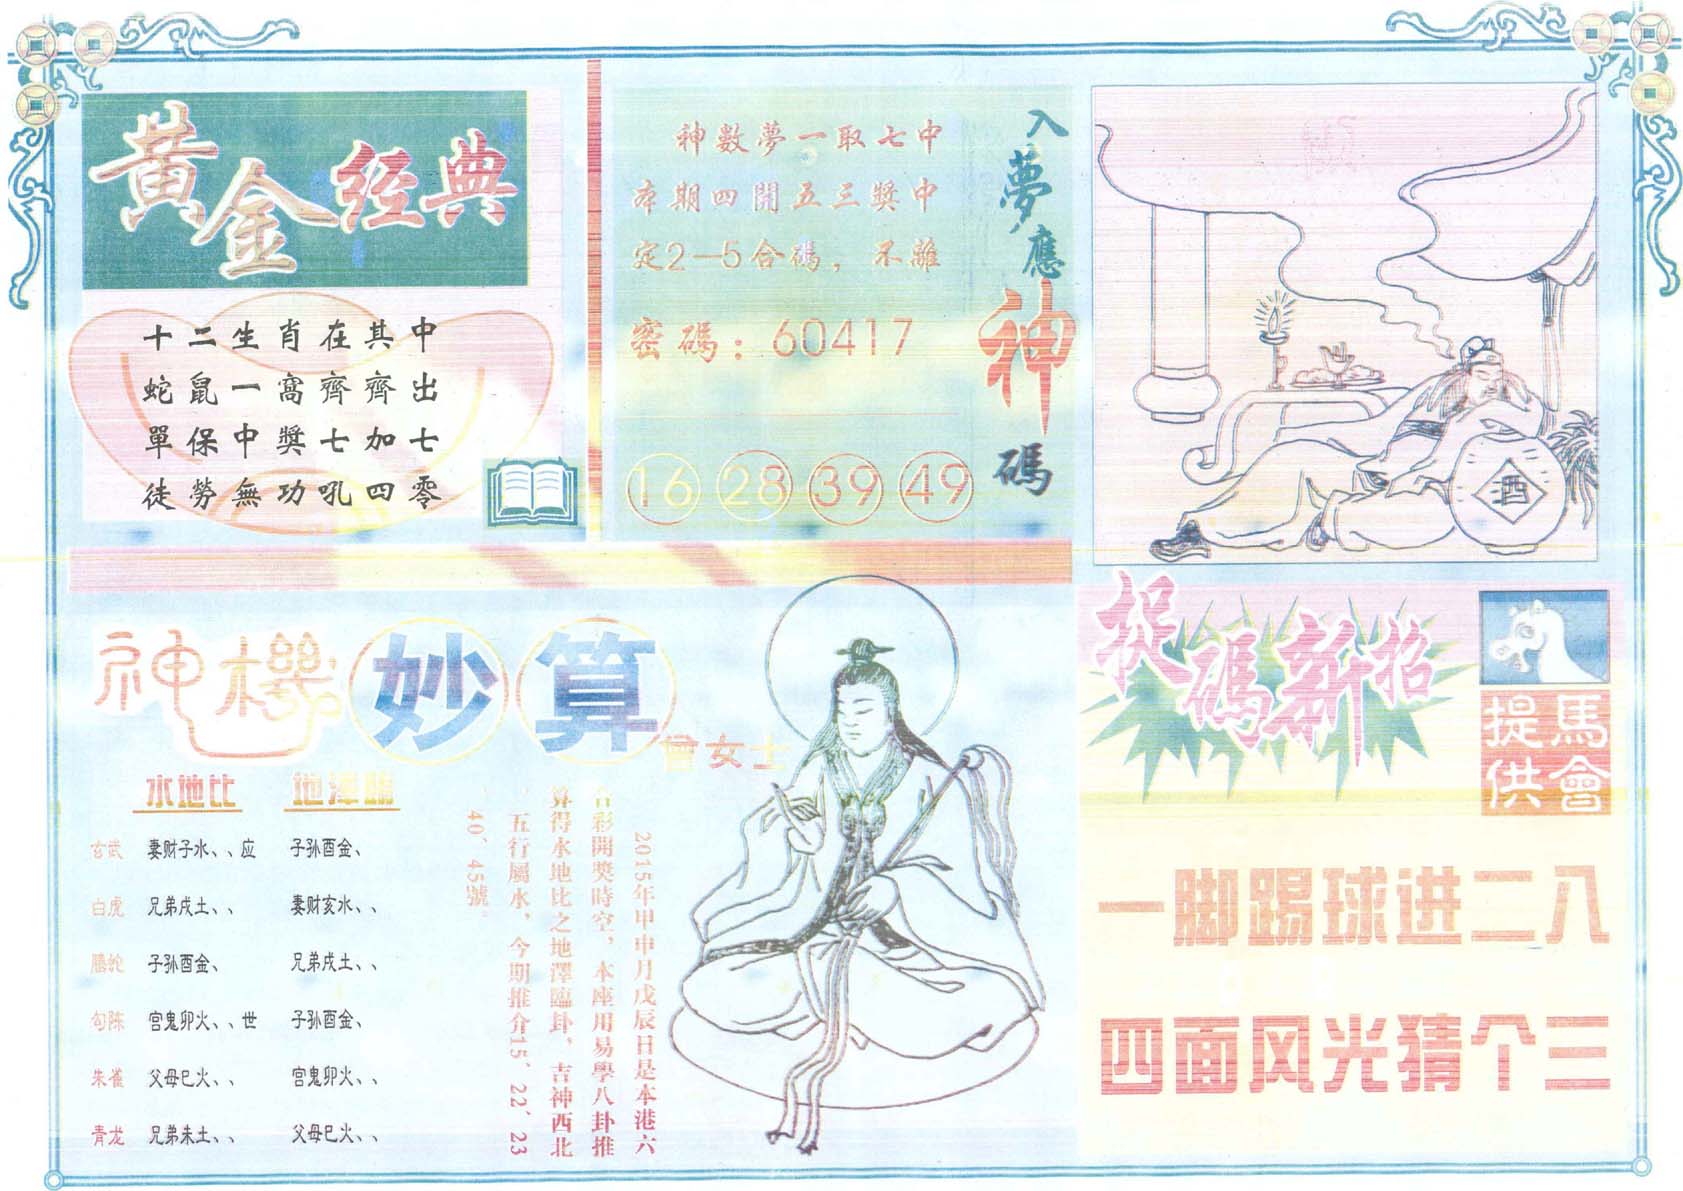 黃金经典
十二生肖在其中
蛇鼠一窩齊齊出
單保中獎七加七
徒勞無功吼四零
神數夢一取七中
本期四開五三獎中
定2—5合碼，不離
密碼：60417
16 28 39 49
入夢應神碼
酒
神機妙算
曾女士
水地比 地澤臨
玄武 妻财子水、、应 子孙酉金、
白虎 兄弟戌土、、 妻财亥水、、
螣蛇 子孙酉金、 兄弟戌土、、
勾陈 官鬼卯火、、世 子孙酉金、
朱雀 父母巳火、、 官鬼卯火、、
青龙 兄弟未土、、 父母巳火、、
2015年甲申月戊辰日是本港六
合彩開獎時空，本座用易學八卦推
算得水地比之地澤臨卦，吉神西北
，五行屬水，今期推介15、22、23
、40、45號。
捉碼新招
馬會提供
一脚踢球进二八
四面风光猜个三